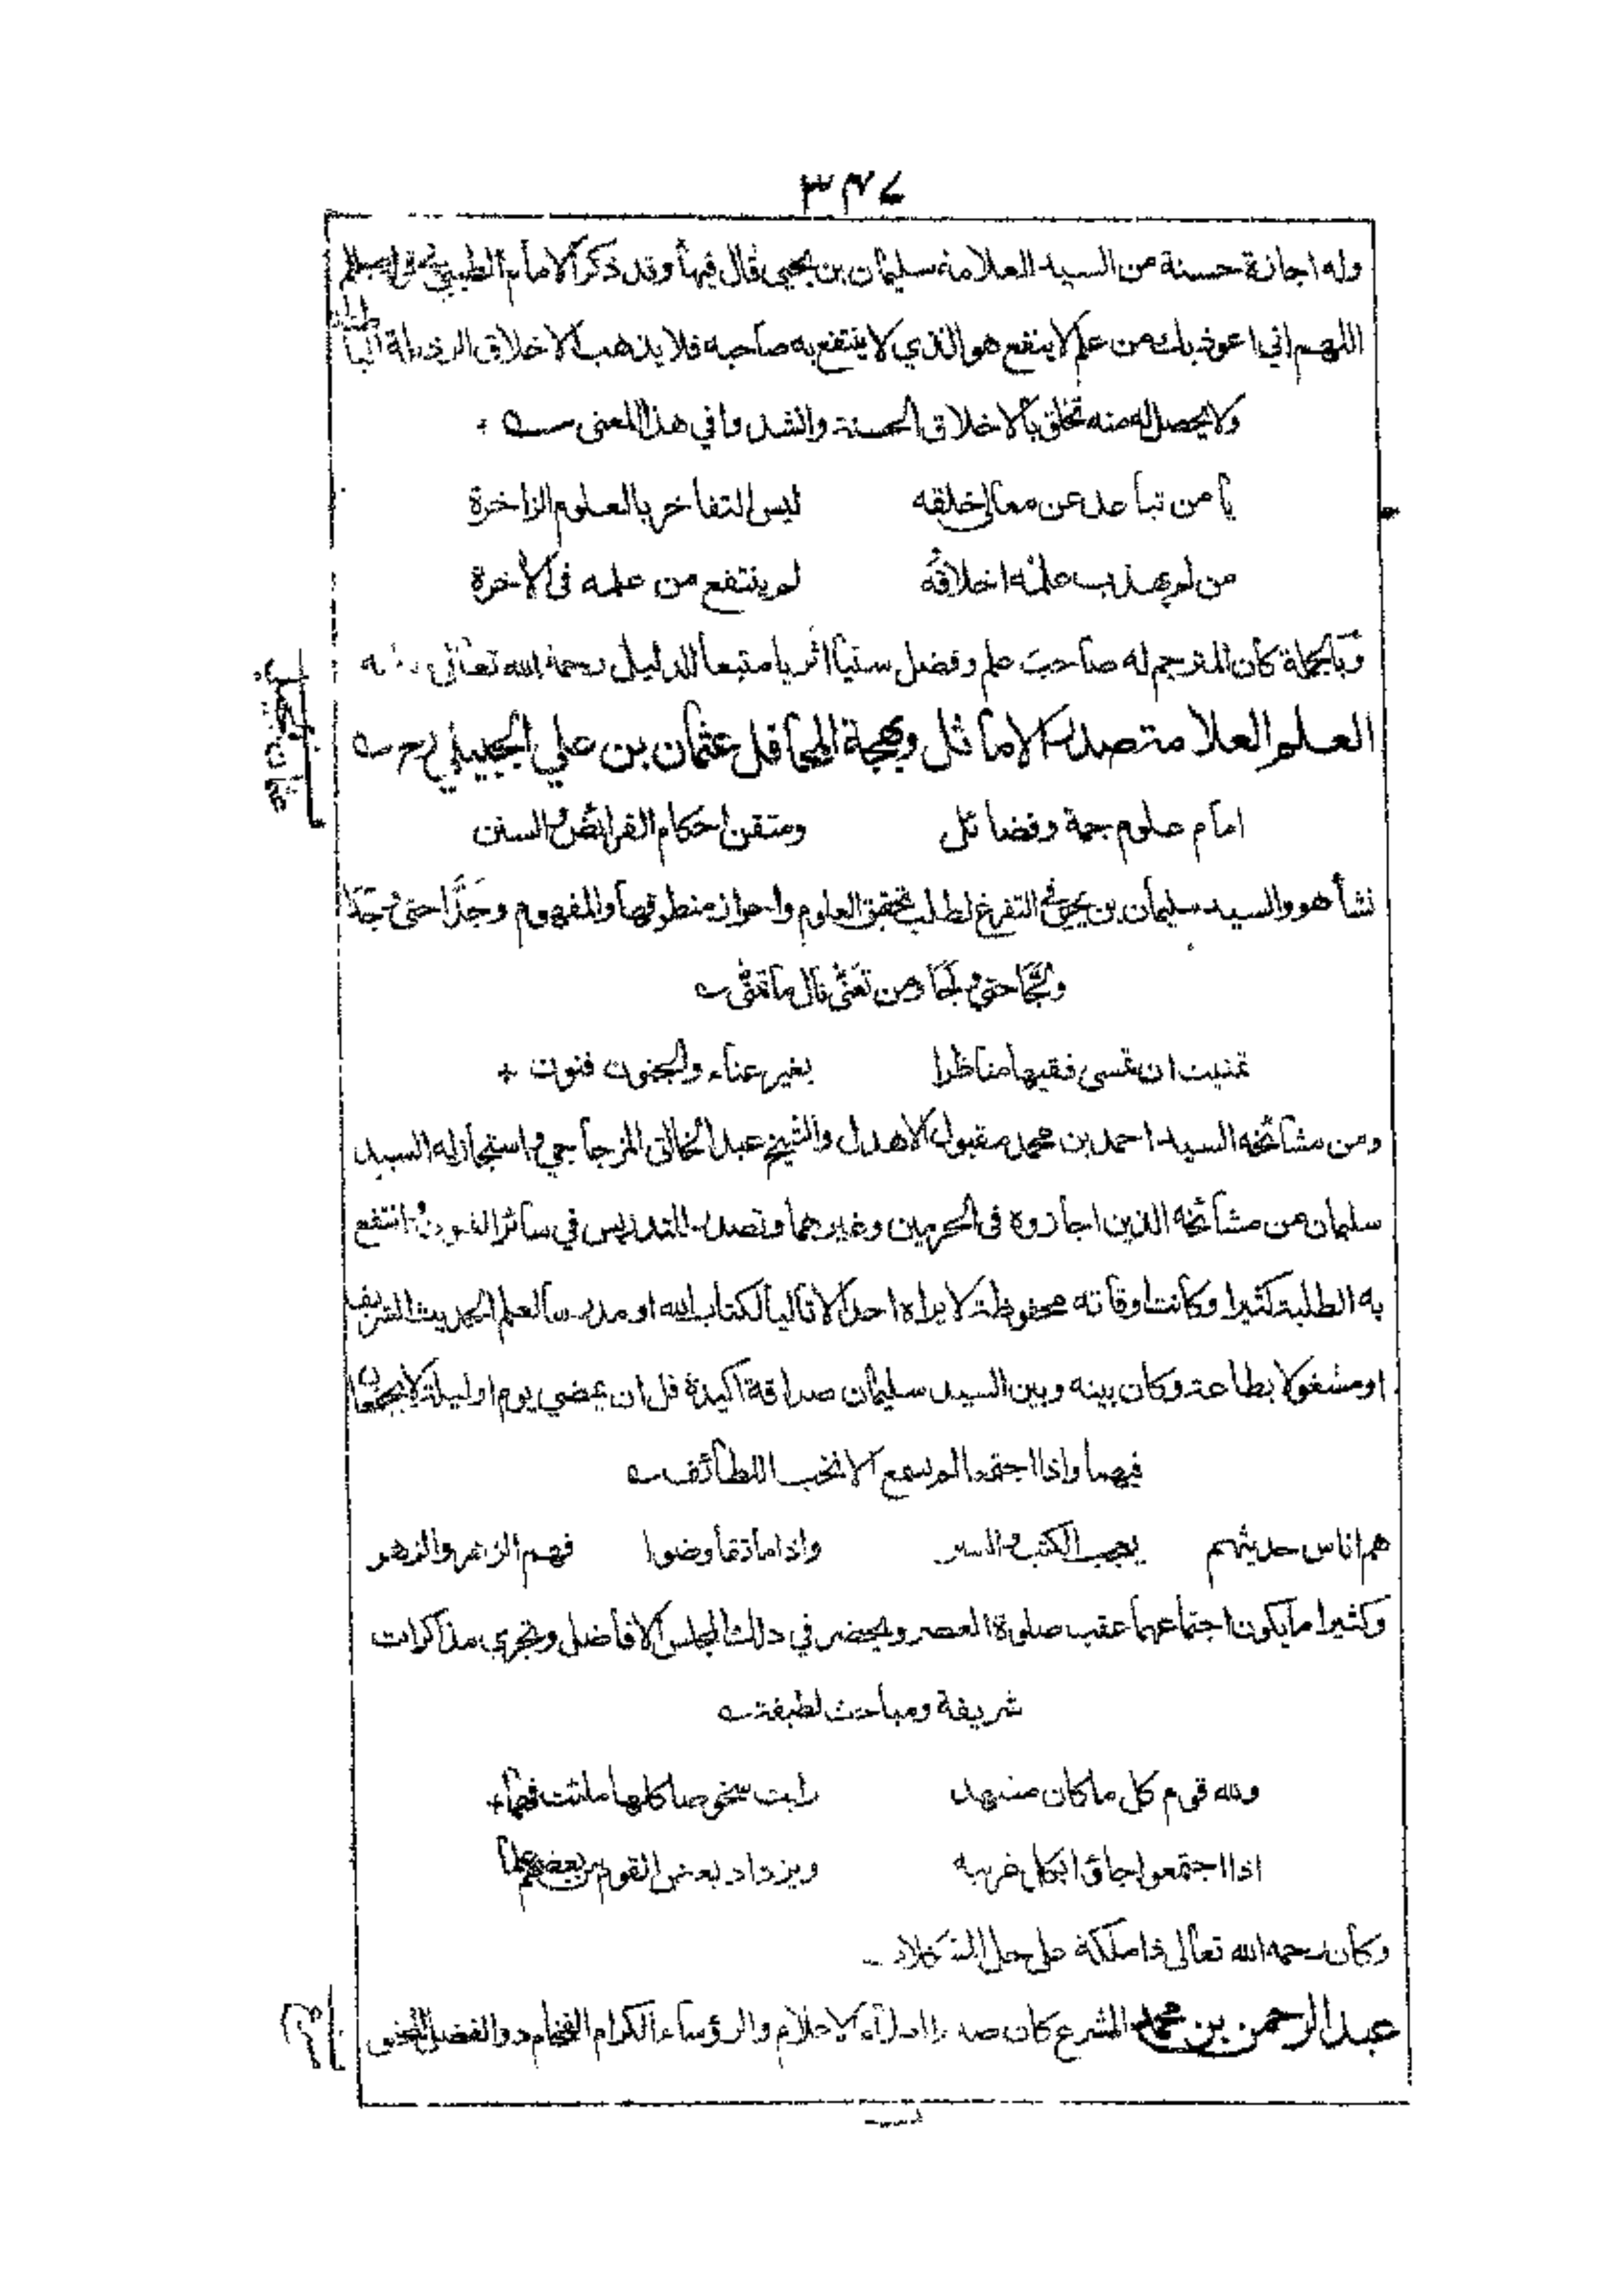 ٣٤٧
وله اجازة حسنة من السيد العلامة سليمان بن يحيى قال فيها وقد ذكر الامام الطيبي في قوله صلعم
اللهم اني اعوذ بك من علم لا ينفع هو الذي لا ينتفع به صاحبه فلا يذهب الاخلاق الرذيلة الباطنة
ولا يحصل له منه تخلق بالاخلاق الحسنة وانشدوا في هذا المعنى
يا من تباعد عن معالي خلقه ليس التفاخر بالعلوم الزاخرة
من لم يهذب علمه اخلاقه لم ينتفع من علمه فى الاخرة
وبالجملة كان المترجم له صاحب علم وفضل سنيا اثريا متبعا للدليل رحمة الله تعالى
العلم العلامة صدر الاماثل وبهجة المحافل عثمان بن علي الجبيلي رح
عثمان الجبيلي
امام علوم جمة وفضائل ومتقن احكام الفرائض والسنن
نشأ هو والسيد سليمان بن يحيى في التفرغ لطلب تحقيق العلوم واحراز منطوقها والمفهوم وجدا حتى وجدا
ولجا حتى ولجا ومن تعنى نال ما تمنى
تمنيت ان تمسى فقيها مناظرا بغير عناء والجنون فنون
ومن مشائخه السيد احمد بن محمد مقبول الاهدل والشيخ عبد الخالق المزجاجي واستجاز له السيد
سليمان من مشائخه الذين اجازوه فى الحرمين وغيرهما وتصدر للتدريس في سائر الفنون وانتفع
به الطلبة كثيرا وكانت اوقاته محفوظة لا يراه احد الا تاليا لكتاب الله او مدرسا لعلم الحديث الشريف
او مشغولا بطاعة وكان بينه وبين السيد سليمان صداقة اكيدة قل ان يمضي يوم او ليلة لا يجتمعان
فيهما واذا اجتمعا لم يسمع الا نخب اللطائف
هم اناس حديثهم يعجب الكتب والسير واذا ما تفاوضوا فهم الزهر والزهر
وكثيرا ما يكون اجتماعهما عقب صلوة العصر ويحضر في ذلك المجلس الافاضل وتجري مذاكرات
شريفة ومباحث لطيفة
ولله قوم كل ما كان مشهد رايت شخوصا كلها ملئت فهما
اذا اجتمعوا جاؤا بكل غريبه ويزداد بعض القوم من بعضهم علما
وكان رحمه الله تعالى ذا ملكة على حل المشكلات
عبد الرحمن بن محمد المشرع كان صدر الاعلام والرؤساء الكرام الفخام ذو الفضل